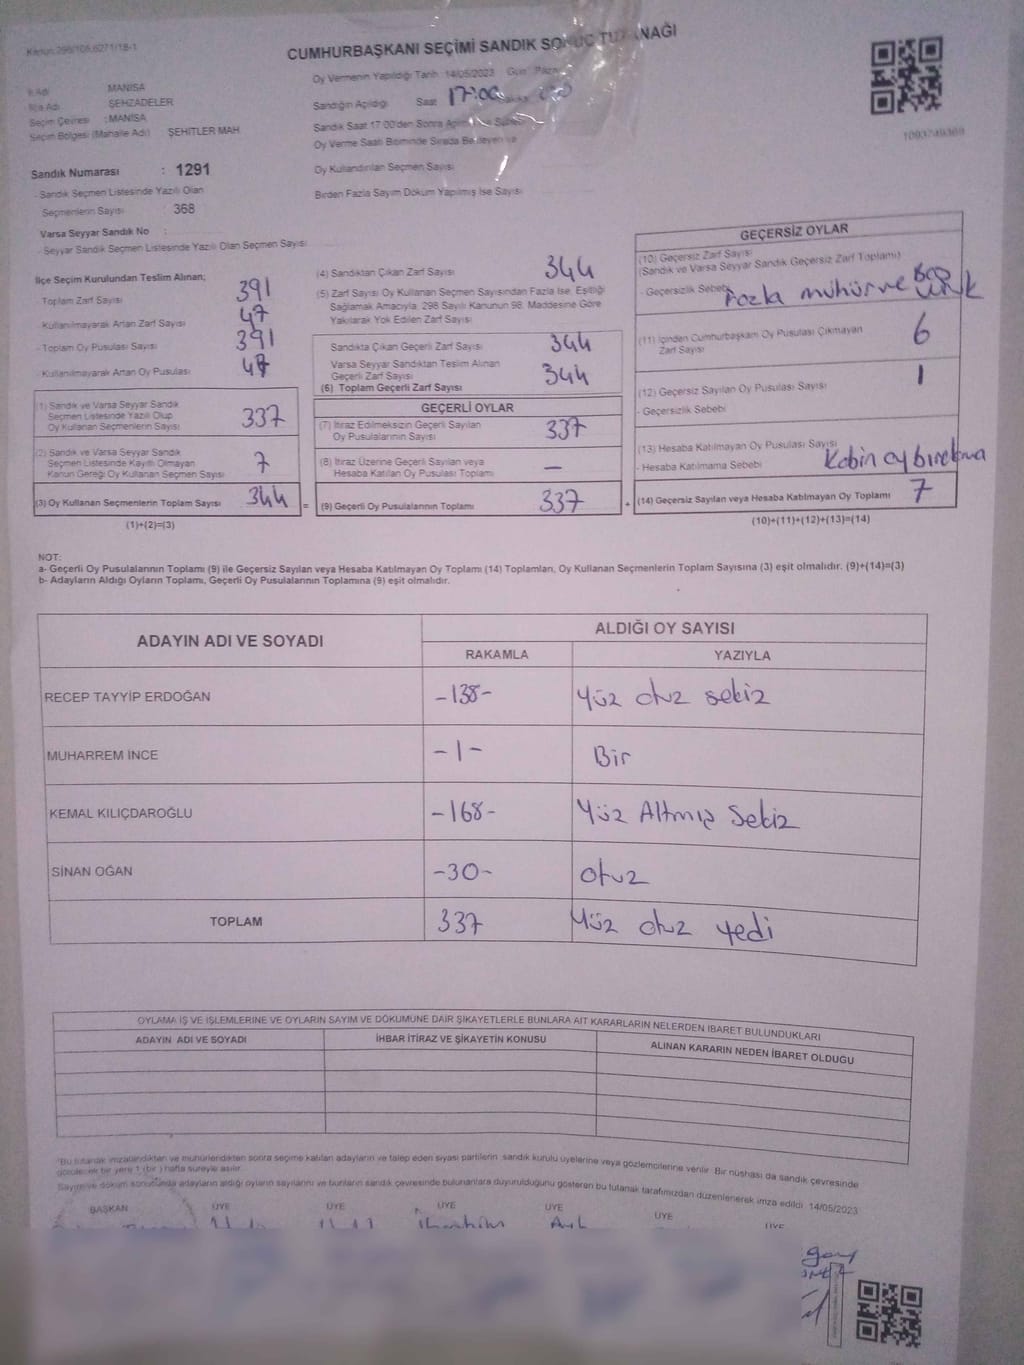 Kanun:298/105,6271/18-1
CUMHURBAŞKANI SEÇİMİ SANDIK SONUÇ TUTANAĞI
Oy Vermenin Yapıldığı Tarih 14/05/2023 Gün Pazar
İl Adı MANİSA
İlçe Adı ŞEHZADELER
Seçim Çevresi : MANİSA
Seçim Bölgesi (Mahalle Adı) ŞEHİTLER MAH
Sandığın Açıldığı Saat 17:00
Sandık Saat 17:00'den Sonra
Oy Verme Saati Bitiminde Sırada Bekleyen ve
Oy Kullandırılan Seçmen Sayısı
Birden Fazla Sayım Döküm Yapılmış İse Sayısı
1093749369
Sandık Numarası : 1291
- Sandık Seçmen Listesinde Yazılı Olan
Seçmenlerin Sayısı : 368
Varsa Seyyar Sandık No :
- Seyyar Sandık Seçmen Listesinde Yazılı Olan Seçmen Sayısı
İlçe Seçim Kurulundan Teslim Alınan;
- Toplam Zarf Sayısı 391
- Kullanılmayarak Artan Zarf Sayısı 47
- Toplam Oy Pusulası Sayısı 391
- Kullanılmayarak Artan Oy Pusulası 47
(1) Sandık ve Varsa Seyyar Sandık
Seçmen Listesinde Yazılı Olup
Oy Kullanan Seçmenlerin Sayısı 337
(2) Sandık ve Varsa Seyyar Sandık
Seçmen Listesinde Kayıtlı Olmayan
Kanun Gereği Oy Kullanan Seçmen Sayısı 7
(3) Oy Kullanan Seçmenlerin Toplam Sayısı 344 =
(1)+(2)=(3)
(4) Sandıktan Çıkan Zarf Sayısı 344
(5) Zarf Sayısı Oy Kullanan Seçmen Sayısından Fazla İse, Eşitliği
Sağlamak Amacıyla, 298 Sayılı Kanunun 98. Maddesine Göre
Yakılarak Yok Edilen Zarf Sayısı
Sandıkta Çıkan Geçerli Zarf Sayısı 344
Varsa Seyyar Sandıktan Teslim Alınan
Geçerli Zarf Sayısı
(6) Toplam Geçerli Zarf Sayısı 344
GEÇERLİ OYLAR
(7) İtiraz Edilmeksizin Geçerli Sayılan
Oy Pusulalarının Sayısı 337
(8) İtiraz Üzerine Geçerli Sayılan veya
Hesaba Katılan Oy Pusulası Toplamı –
(9) Geçerli Oy Pusulalarının Toplamı 337 +
GEÇERSİZ OYLAR
(10) Geçersiz Zarf Sayısı
(Sandık ve Varsa Seyyar Sandık Geçersiz Zarf Toplamı)
- Geçersizlik Sebebi Fazla mühür ve
(11) İçinden Cumhurbaşkanı Oy Pusulası Çıkmayan
Zarf Sayısı 6
(12) Geçersiz Sayılan Oy Pusulası Sayısı 1
- Geçersizlik Sebebi
(13) Hesaba Katılmayan Oy Pusulası Sayısı
- Hesaba Katılmama Sebebi Kabin oy bırakma
(14) Geçersiz Sayılan veya Hesaba Katılmayan Oy Toplamı 7
(10)+(11)+(12)+(13)=(14)
NOT:
a- Geçerli Oy Pusulalarının Toplamı (9) ile Geçersiz Sayılan veya Hesaba Katılmayan Oy Toplamı (14) Toplamları, Oy Kullanan Seçmenlerin Toplam Sayısına (3) eşit olmalıdır. (9)+(14)=(3)
b- Adayların Aldığı Oyların Toplamı, Geçerli Oy Pusulalarının Toplamına (9) eşit olmalıdır.
ADAYIN ADI VE SOYADI ALDIĞI OY SAYISI
RAKAMLA YAZIYLA
RECEP TAYYİP ERDOĞAN -138- Yüz otuz sekiz
MUHARREM İNCE -1- Bir
KEMAL KILIÇDAROĞLU -168- Yüz Altmış Sekiz
SİNAN OĞAN -30- otuz
TOPLAM 337 Yüz otuz yedi
OYLAMA İŞ VE İŞLEMLERİNE VE OYLARIN SAYIM VE DÖKÜMÜNE DAİR ŞİKAYETLERLE BUNLARA AİT KARARLARIN NELERDEN İBARET BULUNDUKLARI
ADAYIN ADI VE SOYADI İHBAR İTİRAZ VE ŞİKAYETİN KONUSU ALINAN KARARIN NEDEN İBARET OLDUĞU
*Bu tutanak imzalandıktan ve mühürlendikten sonra seçime katılan adayların ve talep eden siyasi partilerin sandık kurulu üyelerine veya gözlemcilerine verilir. Bir nüshası da sandık çevresinde
görülecek bir yere 1 (bir) hafta süreyle asılır.
Sayım ve döküm sonucunda adayların aldığı oyların sayılarını ve bunların sandık çevresinde bulunanlara duyurulduğunu gösteren bu tutanak tarafımızdan düzenlenerek imza edildi. 14/05/2023
BAŞKAN ÜYE ÜYE ÜYE ÜYE ÜYE ÜYE